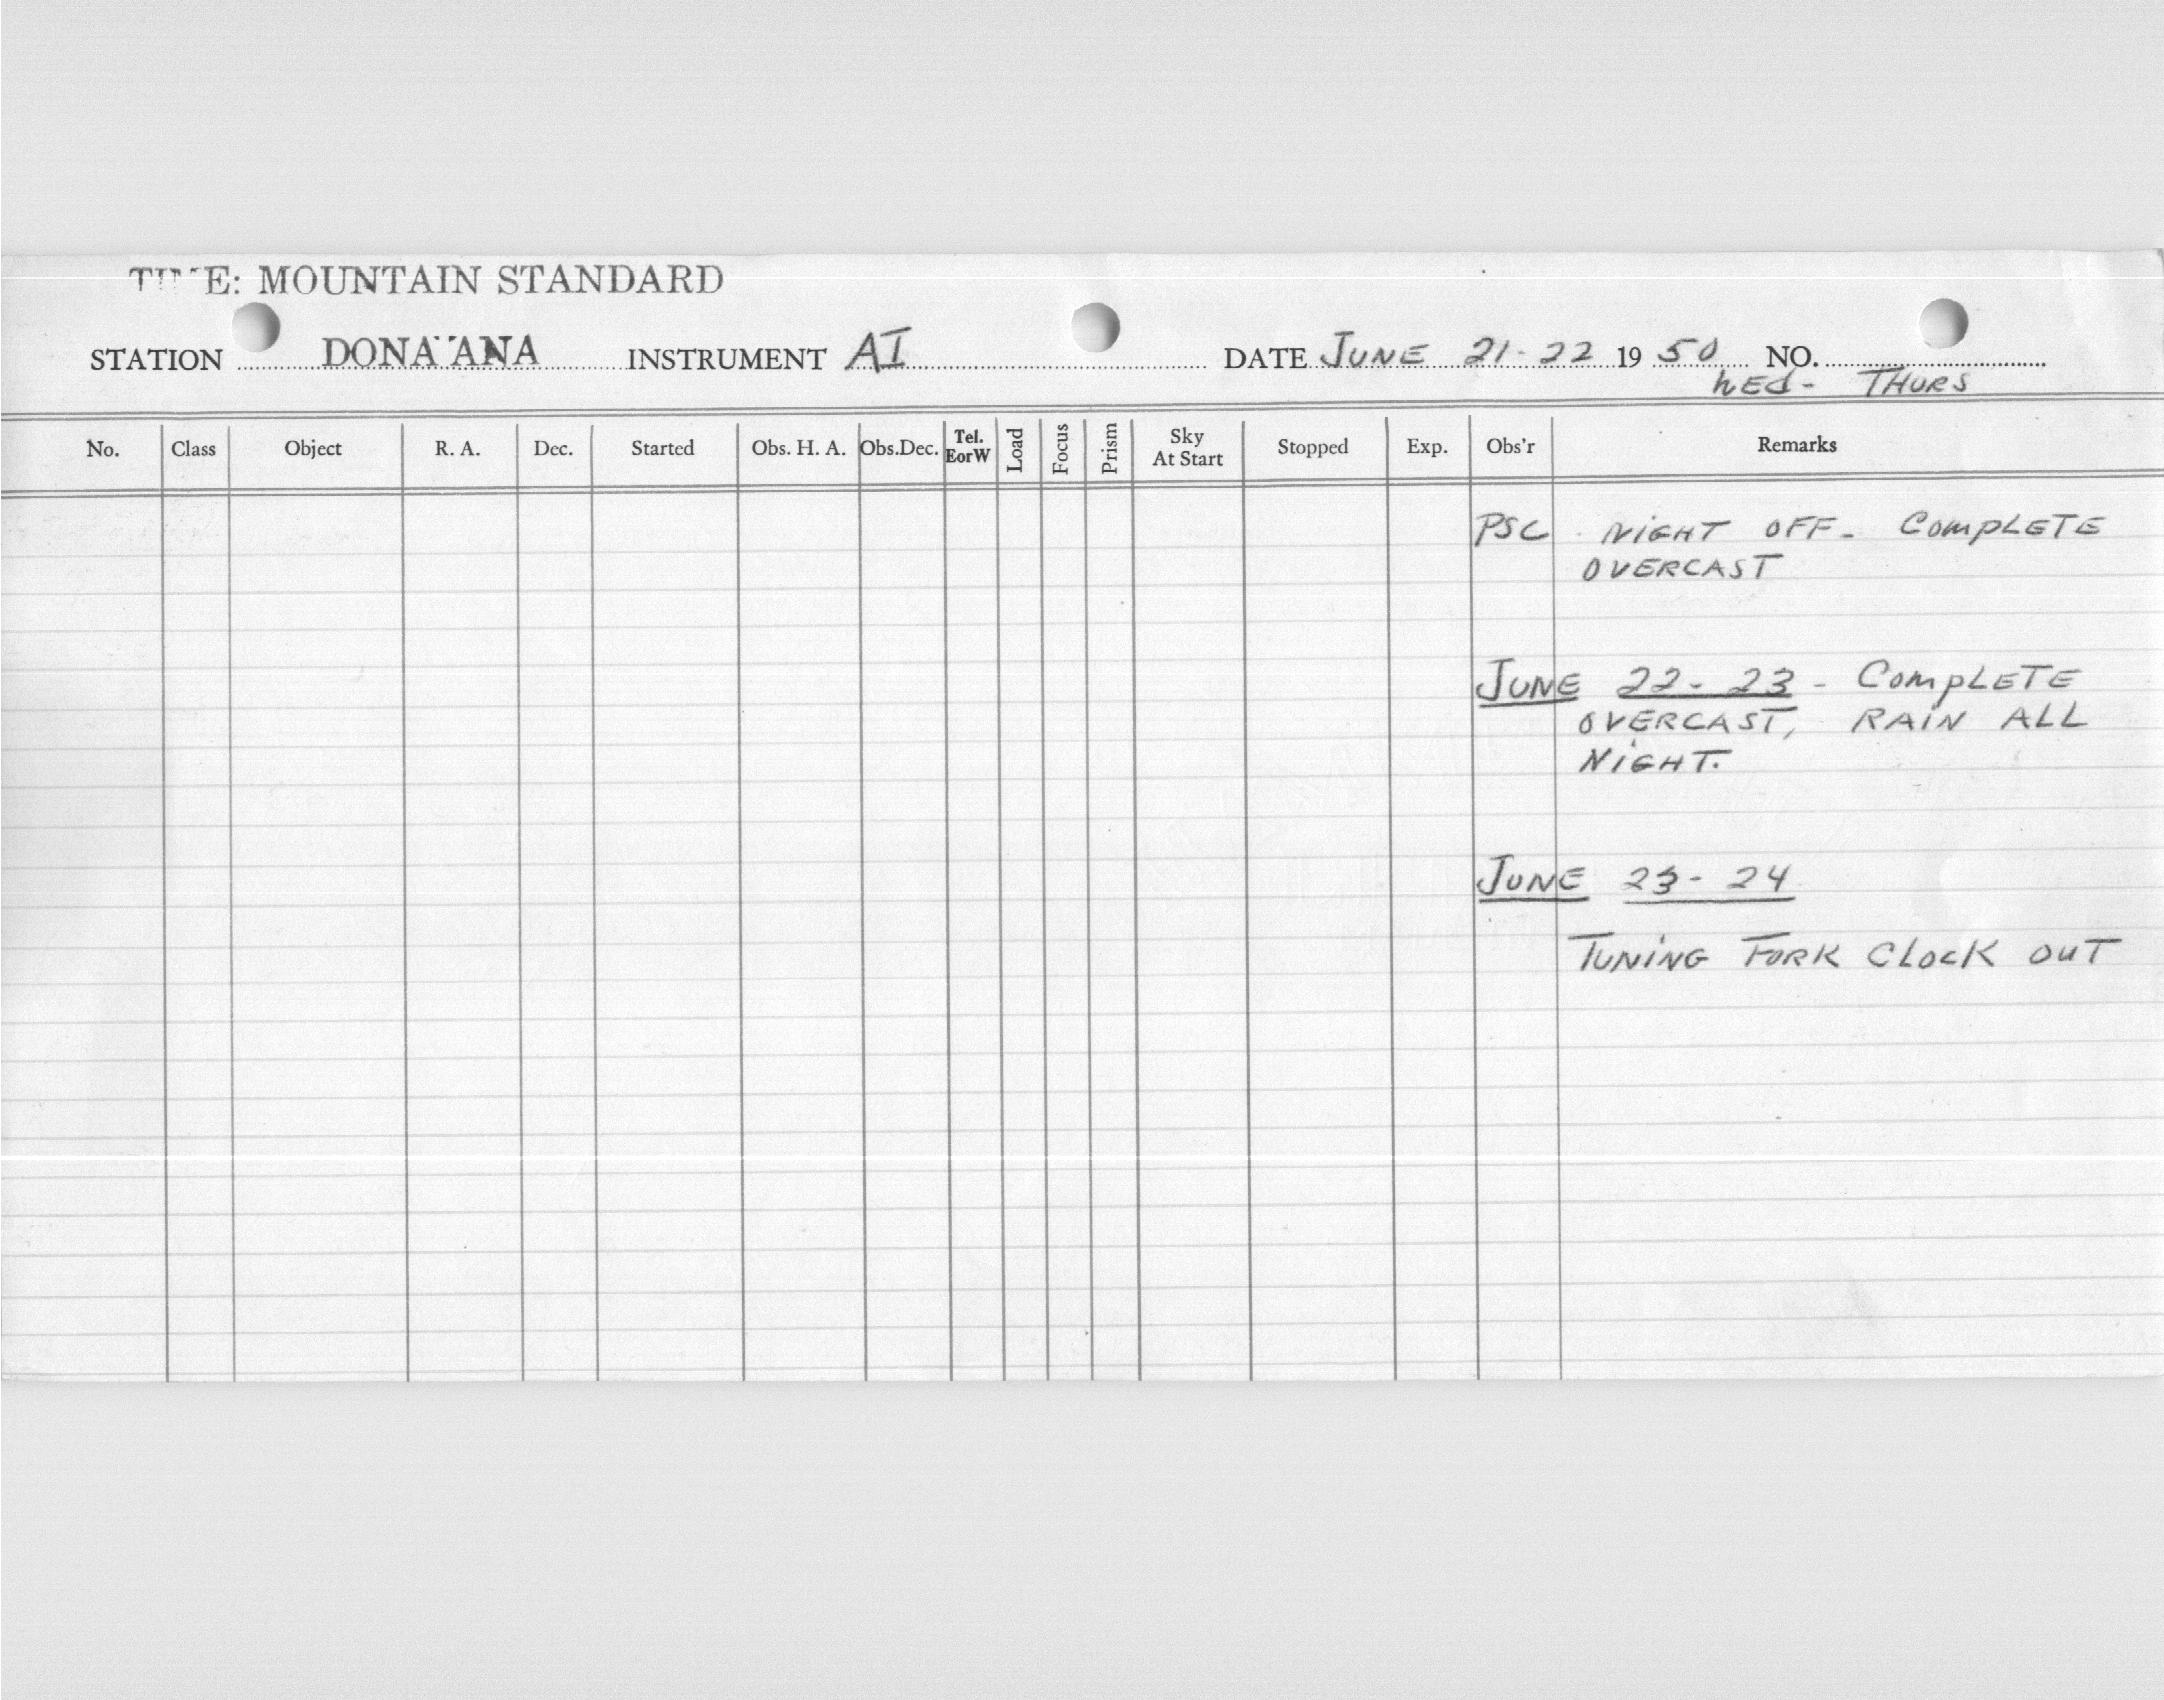 TIME: MOUNTAIN STANDARD
STATION DONA ANA INSTRUMENT AI DATE JUNE 21-22 1950 NO.
WEd- THURS
No. Class Object R. A. Dec. Started Obs. H. A. Obs.Dec. Tel. EorW Load Focus Prism Sky At Start Stopped Exp. Obs'r Remarks
PSC NiGHT OFF- COmpLETE
OVERCAST
JUNE 22-23 - COmpLETE
OVERCAST, RAiN ALL
NiGHT.
JUNE 23-24
TUNiNG FORK CLocK OuT